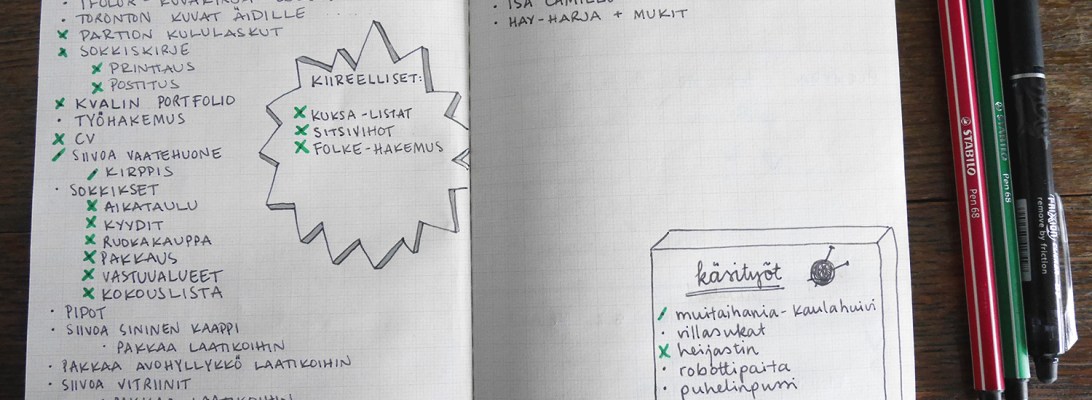 TORONTON KUVAT ÄIDILLE
PARTION KULULASKUT
SOKKISKIRJE
PRINTTAUS
POSTITUS
KVALIN PORTFOLIO
TYÖHAKEMUS
CV
SIIVOA VAATEHUONE
KIRPPIS
SOKKIKSET
AIKATAULU
KYYDIT
RUOKAKAUPPA
PAKKAUS
VASTUUALUEET
KOKOUSLISTA
PIPOT
SIIVOA SININEN KAAPPI
PAKKAA LAATIKOIHIN
PAKKAA AVOHYLLYKKÖ LAATIKOIHIN
SIIVOA VITRIINIT
PAKKAA LAATIKOIHIN
KIIREELLISET:
KUKSA-LISTAT
SITSIVIHOT
FOLKE-HAKEMUS
HAY-HARJA + MUKIT
käsityöt
muitaihania-kaulahuivi
villasukat
heijastin
robottipaita
puhelinpussi
STABILO Pen 68
STABILO Pen 68
remove by friction